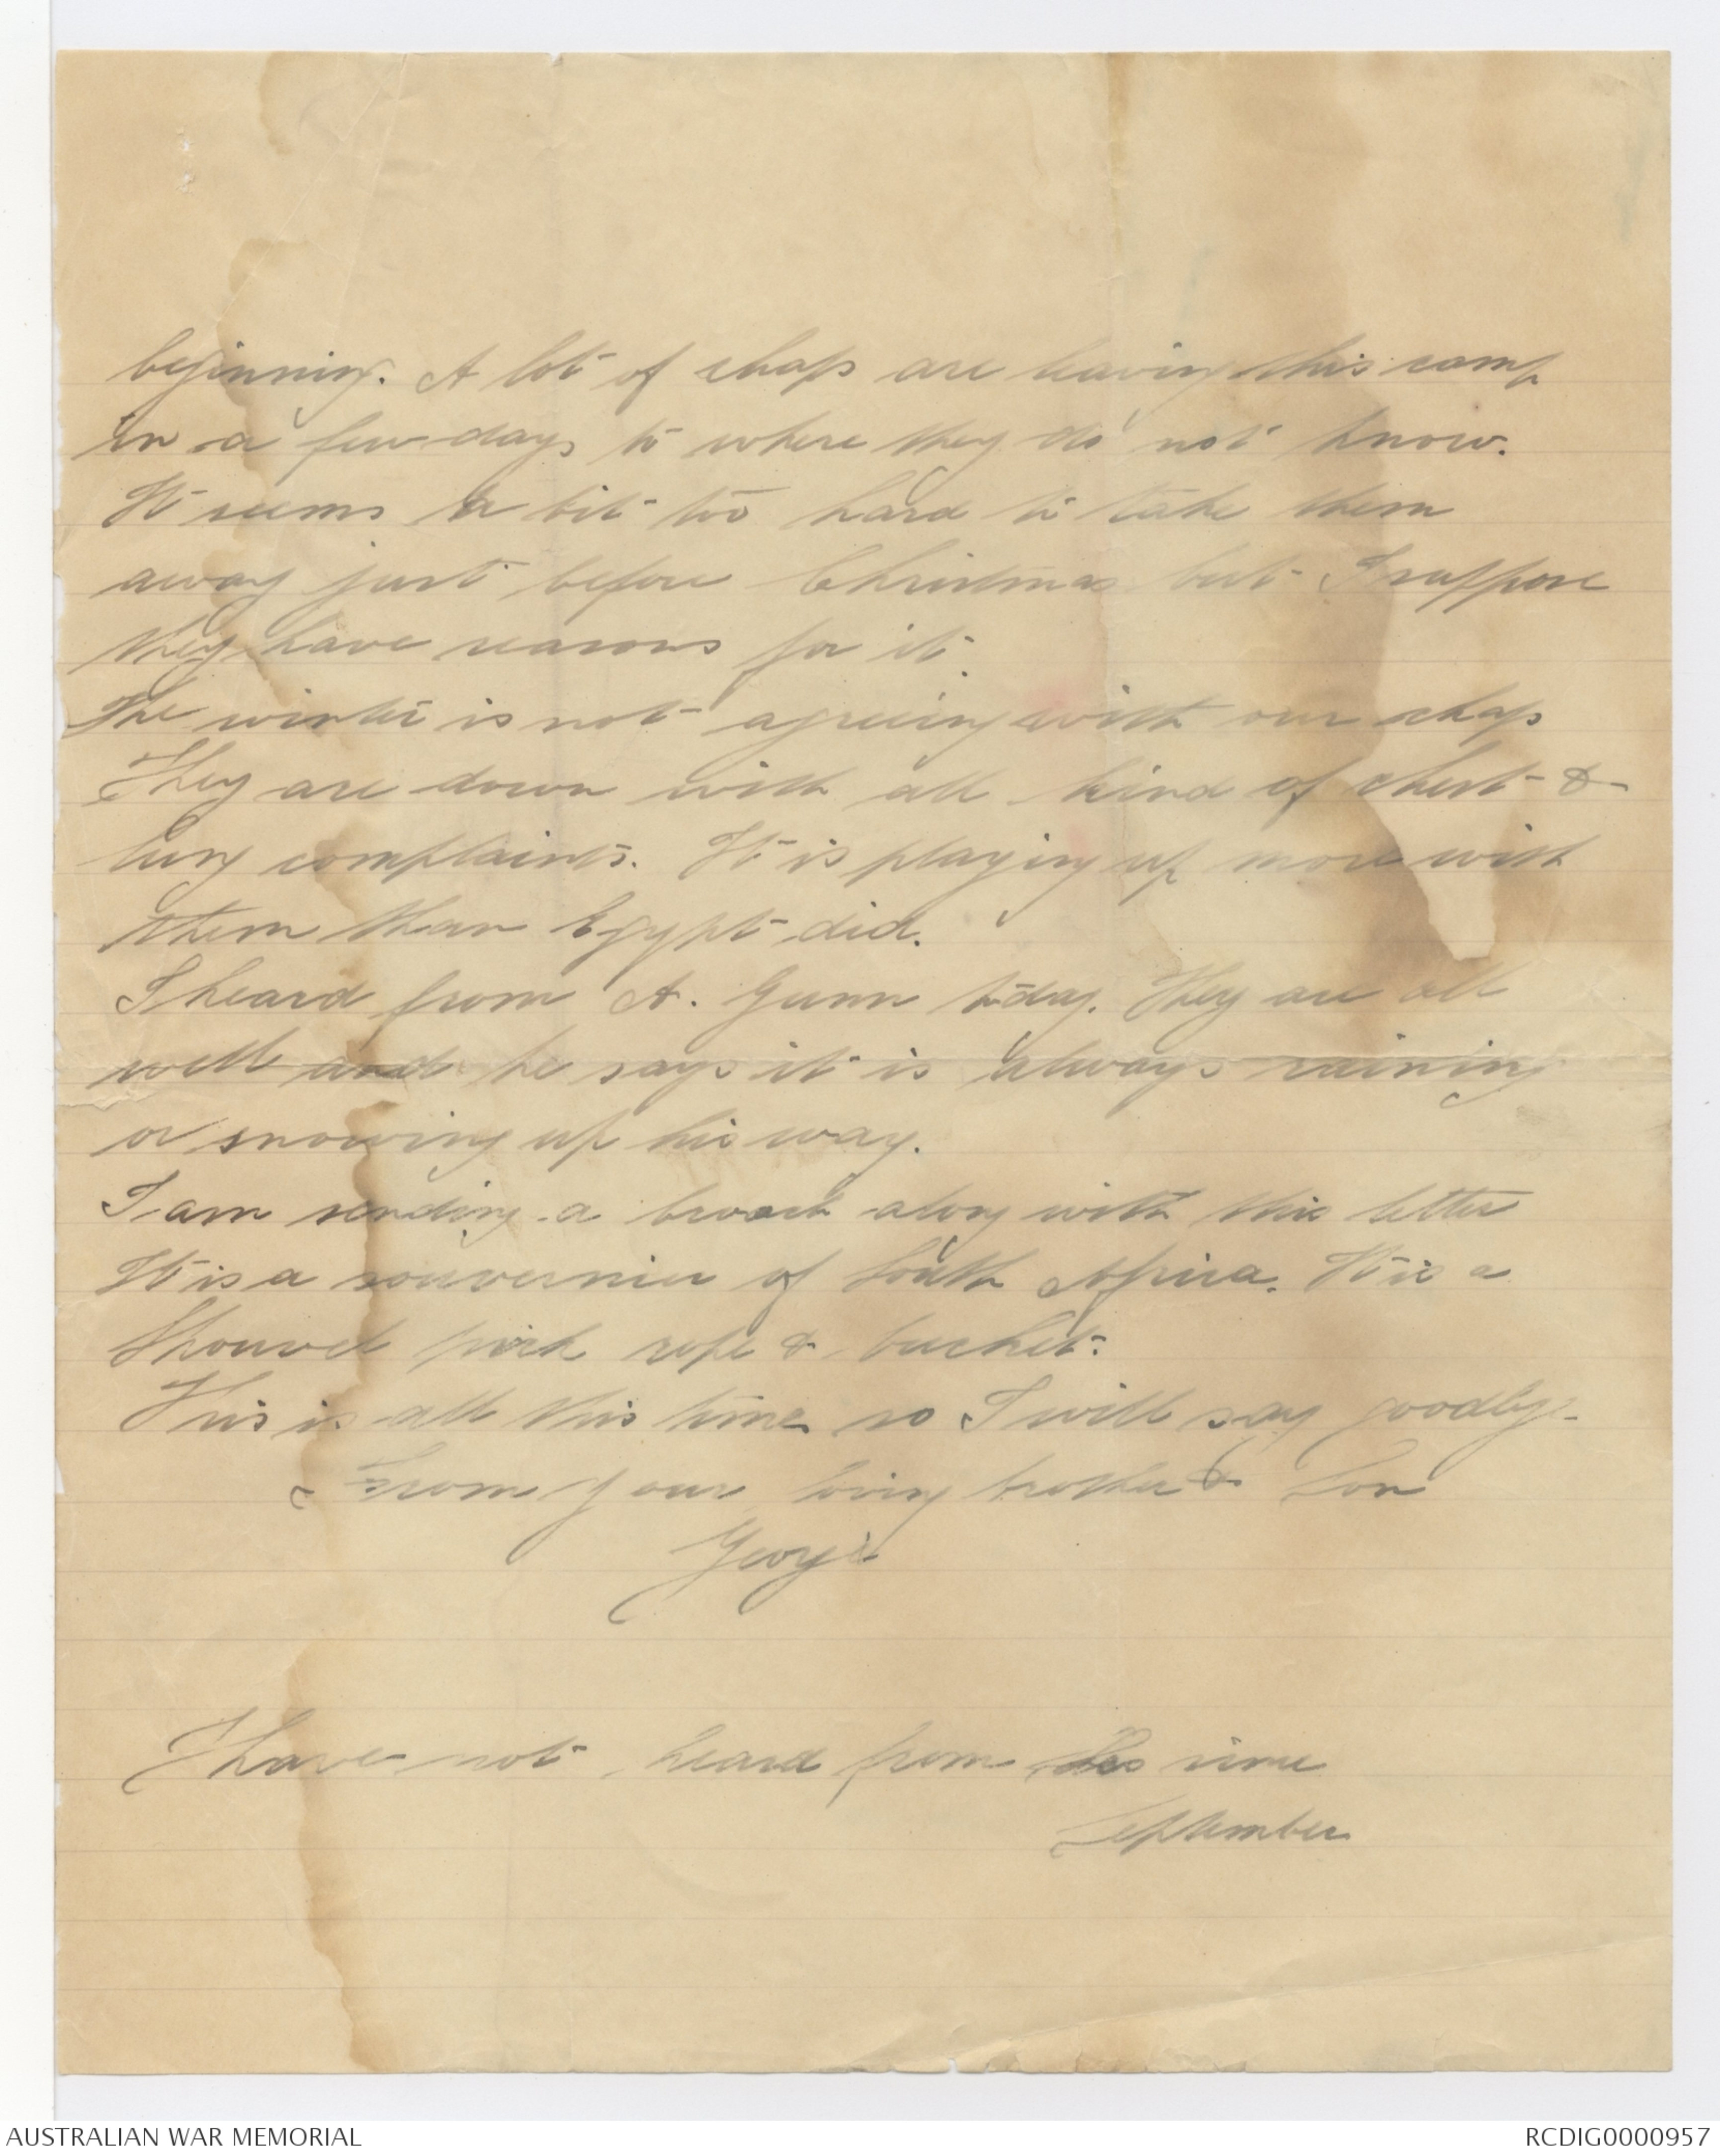 beginning. A lot of chaps are leaving this camp
in a few days to where they do not know.
It seems a bit too hard to take them
away just before Christmas but I suppose
they have reasons for it.
The winter is not agreeing with our chaps
They are down with all kind of chest &
lung complaints. It is playing up more with
them than Egypt did.
I heard from A. Gunn today. They are all
well and he says it is always raining
or snowing up his way.
I am sending a broach along with this letter
It is a souvernier of South Africa. It is a
Shouvel pick rope & bucket.
This is all this time so I will say goodbye
From your loving brother & Son
George
I have not heard from since
September
AUSTRALIAN WAR MEMORIAL
RCDIG0000957